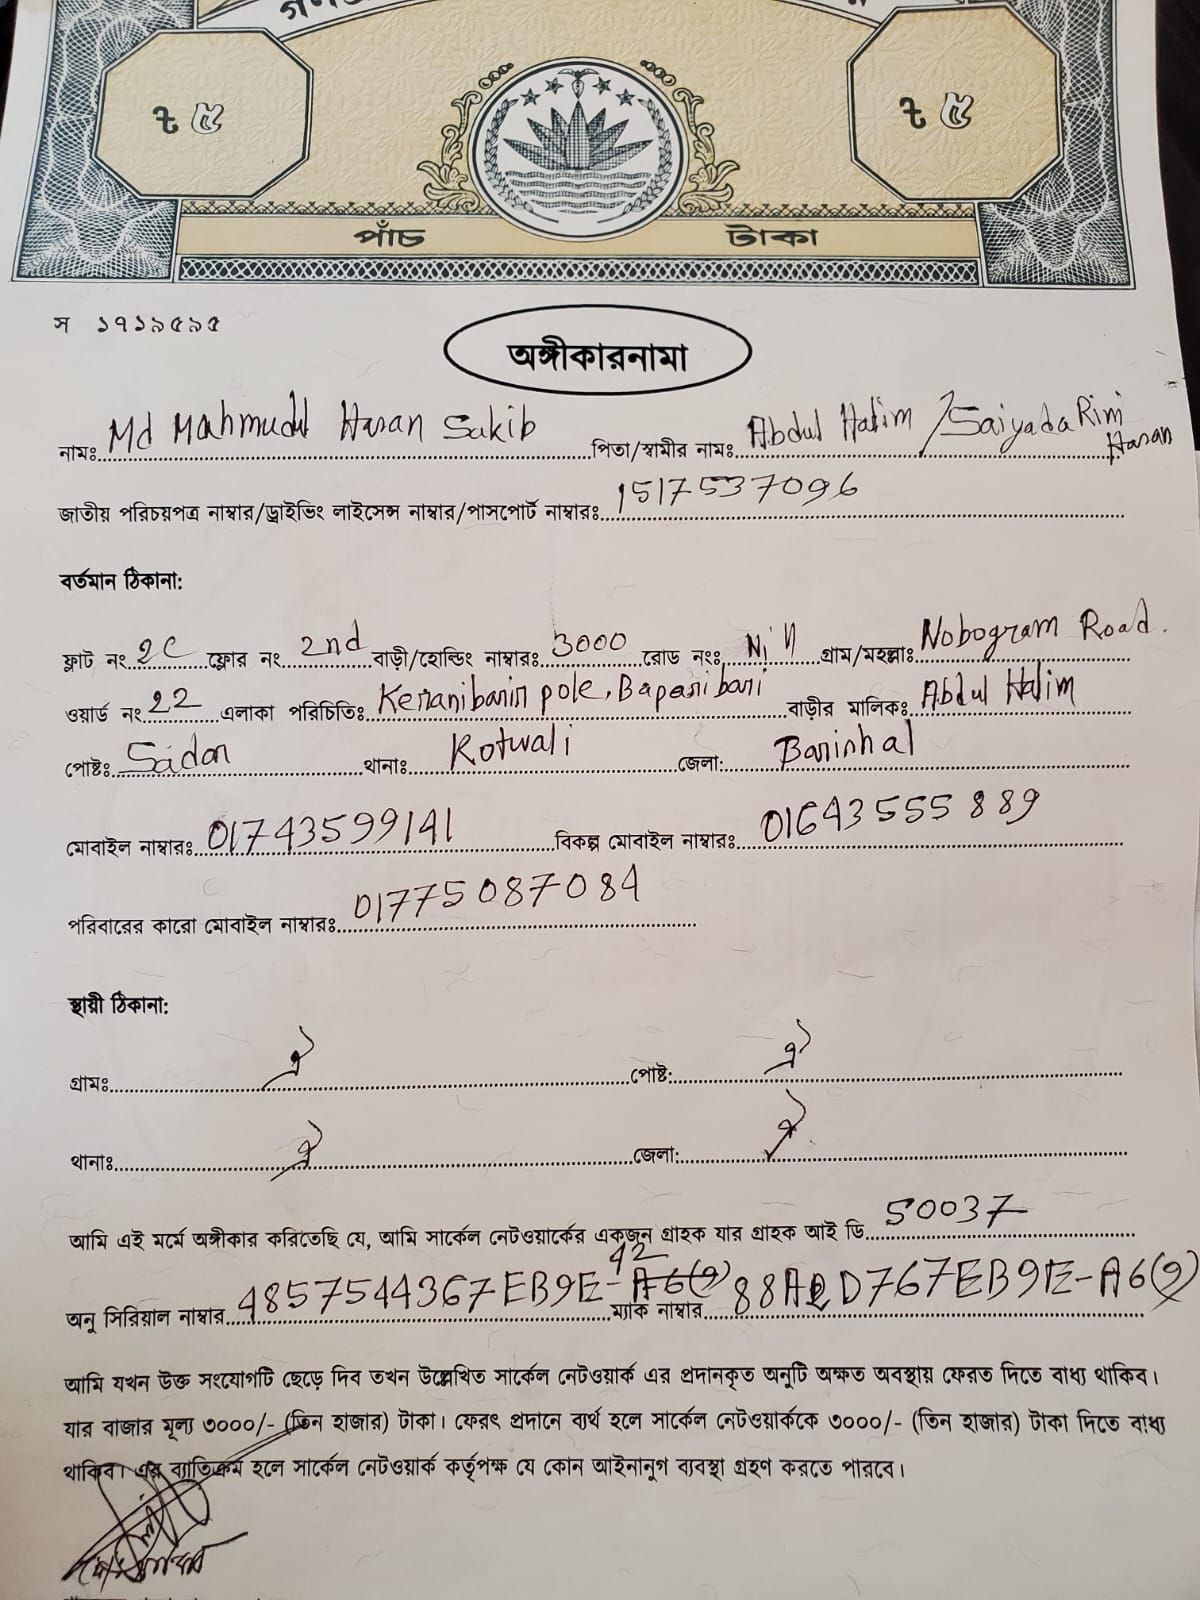 ৳ ৫ ৳ ৫
পাঁচ টাকা
স ১৭১৯৫৯৫
অঙ্গীকারনামা
নামঃ Md Mahmudul Hasan Sakib পিতা/স্বামীর নামঃ Abdul Halim / Saiyada Rimi Hasan
জাতীয় পরিচয়পত্র নাম্বার/ড্রাইভিং লাইসেন্স নাম্বার/পাসপোর্ট নাম্বারঃ 1517537096
বর্তমান ঠিকানা:
ফ্লাট নং 2C ফ্লোর নং 2nd বাড়ী/হোল্ডিং নাম্বারঃ 3000 রোড নংঃ Nill গ্রাম/মহল্লাঃ Nobogram Road.
ওয়ার্ড নং 22 এলাকা পরিচিতিঃ pole, বাড়ীর মালিকঃ Abdul Halim
পোষ্টঃ Sadar থানাঃ Kotwali জেলা: Barishal
মোবাইল নাম্বারঃ 01743599141 বিকল্প মোবাইল নাম্বারঃ 01643555889
পরিবারের কারো মোবাইল নাম্বারঃ 01775087084
স্থায়ী ঠিকানা:
গ্রামঃ ঐ পোষ্ট: ঐ
থানাঃ ঐ জেলা: ঐ
আমি এই মর্মে অঙ্গীকার করিতেছি যে, আমি সার্কেল নেটওয়ার্কের একজন গ্রাহক যার গ্রাহক আই ডি 50037
অনু সিরিয়াল নাম্বার 4857544367EB9E-42 ম্যাক নাম্বার
আমি যখন উক্ত সংযোগটি ছেড়ে দিব তখন উল্লেখিত সার্কেল নেটওয়ার্ক এর প্রদানকৃত অনুটি অক্ষত অবস্থায় ফেরত দিতে বাধ্য থাকিব।
যার বাজার মূল্য ৩০০০/- (তিন হাজার) টাকা। ফেরৎ প্রদানে ব্যর্থ হলে সার্কেল নেটওয়ার্ককে ৩০০০/- (তিন হাজার) টাকা দিতে বাধ্য
থাকিব। এর ব্যতিক্রম হলে সার্কেল নেটওয়ার্ক কর্তৃপক্ষ যে কোন আইনানুগ ব্যবস্থা গ্রহণ করতে পারবে।